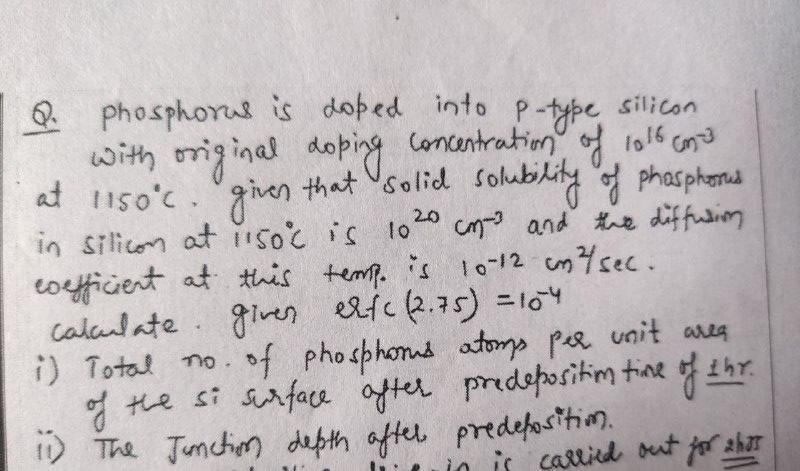 Q. phosphorus is doped into p-type silicon
with original doping concentration of 10^16 cm^-3
at 1150°C. given that solid solubility of phosphorus
in silicon at 1150°C is 10^20 cm^-3 and the diffusion
coefficient at this temp. is 10^-12 cm^2/sec.
calculate. given erfc (2.75) = 10^-4
i) Total no. of phosphorus atoms per unit area
of the si surface after predeposition time of 1hr.
ii) The Junction depth after predeposition.
in is carried out for 2hrs